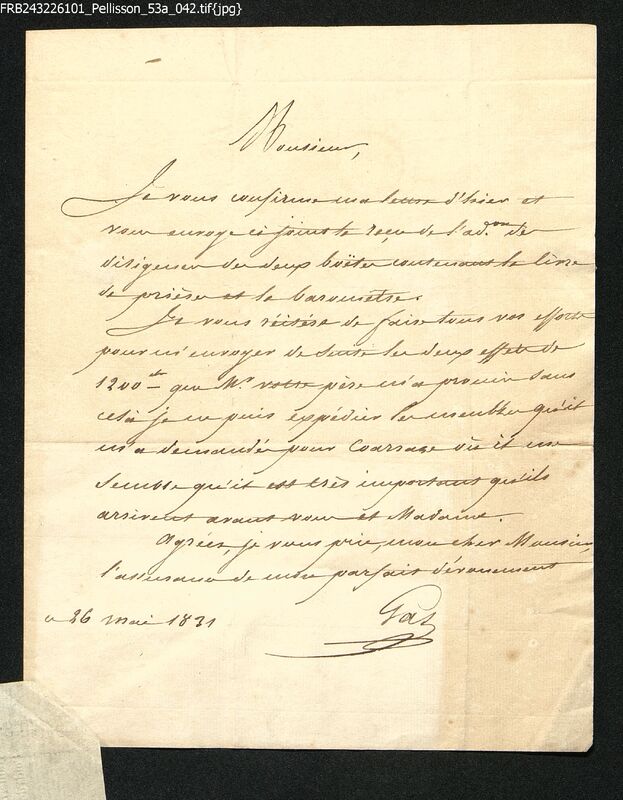 FRB243226101_Pellisson_53a_042.tif{jpg}
Monsieur,
Je vous confirme ma lettre d'hier et
vous envoye ci joint le reçu de l'ad.on des
diligences des deux boëtes contenant le livre
de prières et le baromètre.
Je vous réitère de faire tous vos efforts
pour m'envoyer de suite les deux effets de
1200 que Mr votre père m'a promis sans
cela je ne puis expédier les meubles qu'il
m'a demandés pour Coarraze où il me
semble qu'il est très important qu'ils
arrivent avant vous et Madame.
Agréez, je vous prie, mon cher Monsieur,
l'assurance de mon parfait dévouement
26 mai 1831